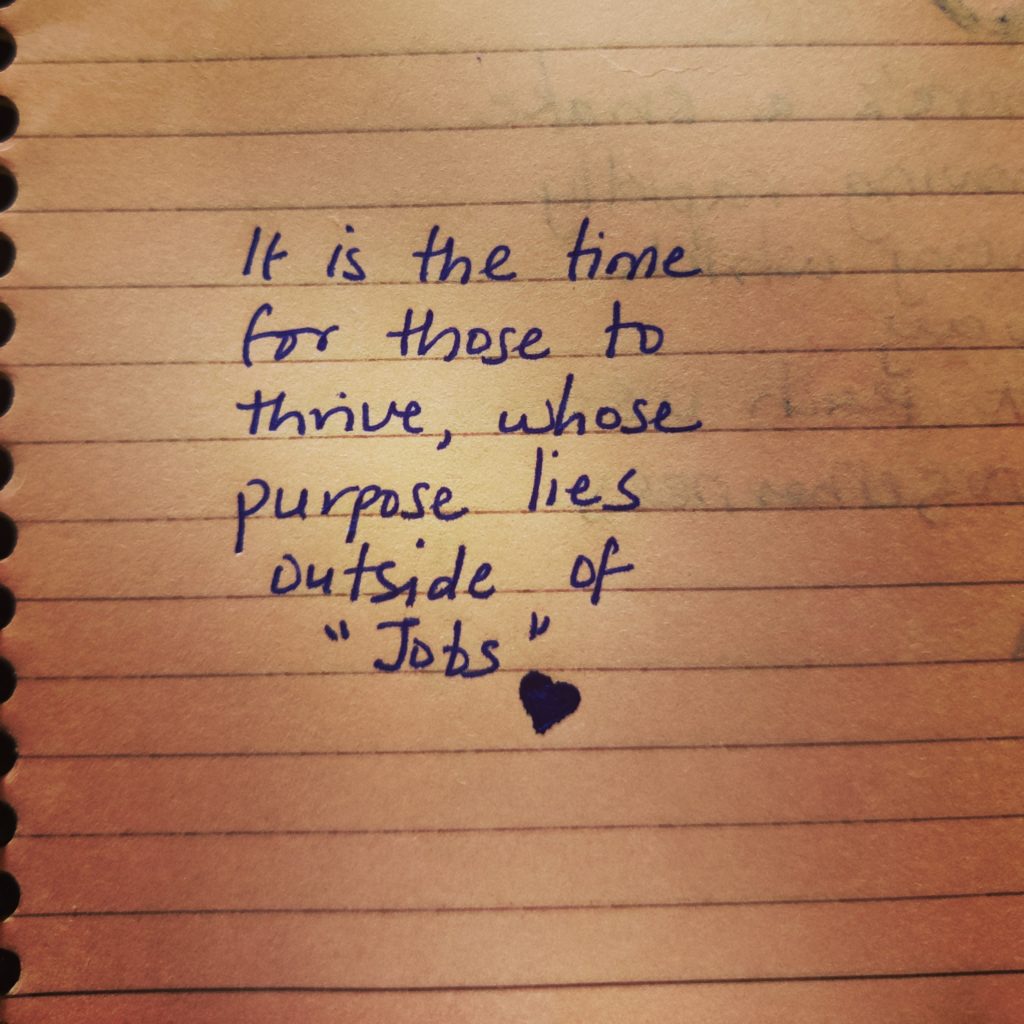 It is the time
for those to
thrive, whose
purpose lies
outside of
"Jobs"